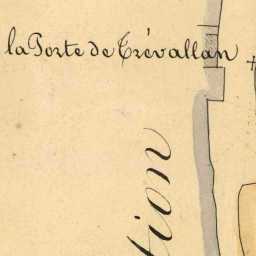 la Porte de Trévallan
tion